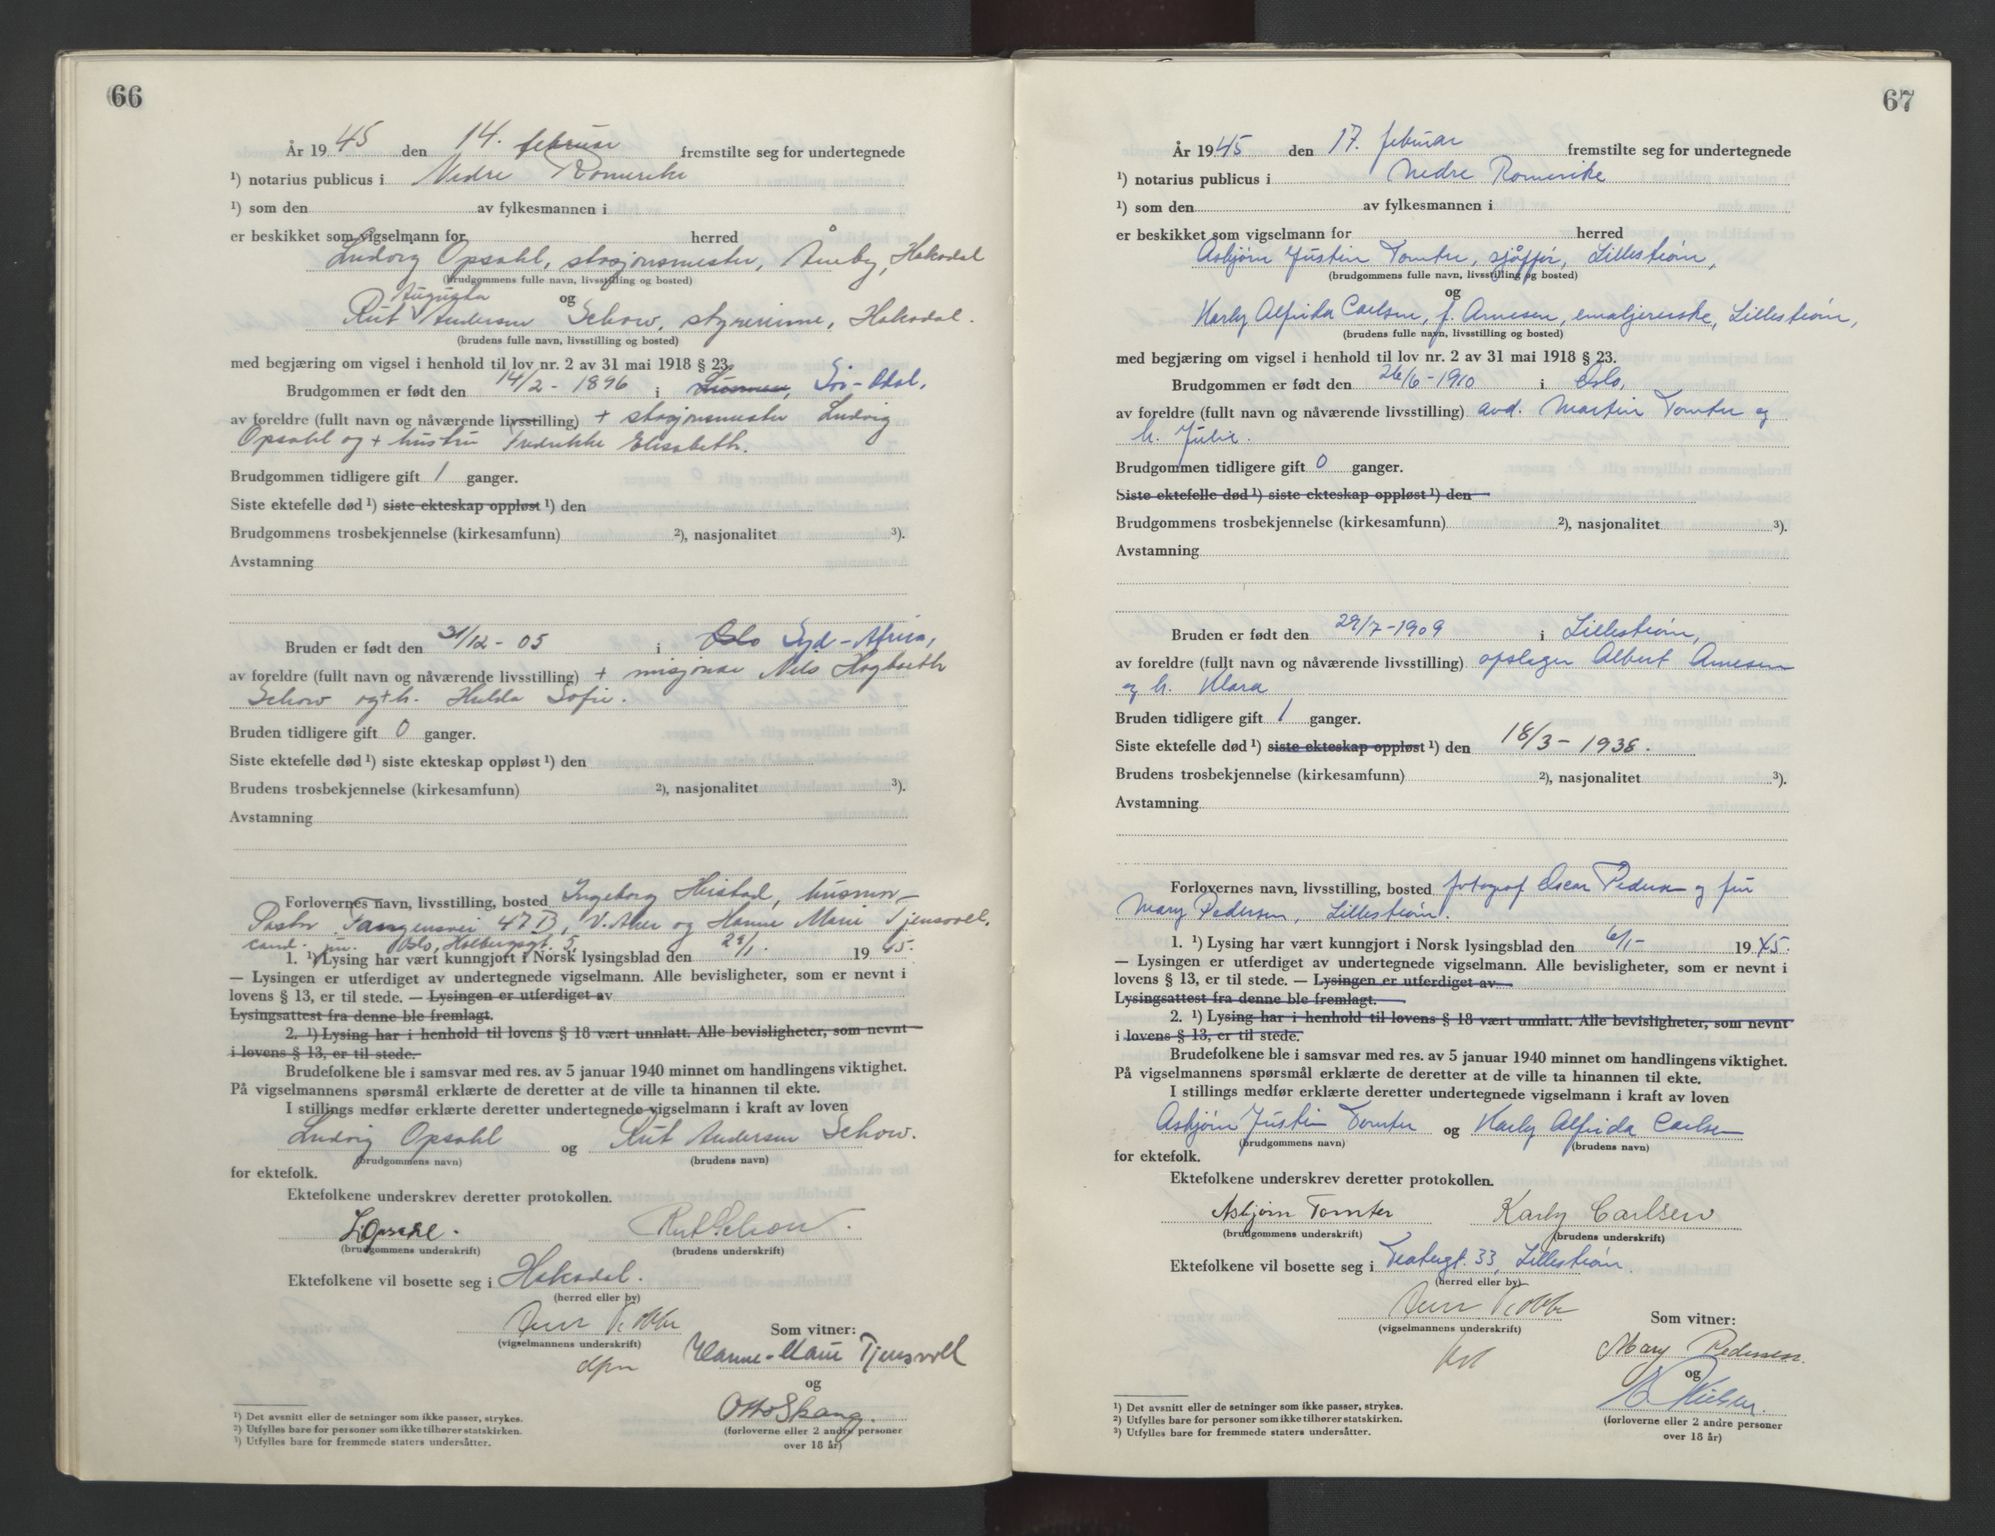 66
År 1945 den 14. februar fremstilte seg for undertegnede
¹) notarius publicus i Nedre Romerike
¹) som den av fylkesmannen i
er beskikket som vigselmann for herred
Ludvig Opsahl, stasjonsmester, Åneby, Hakadal
(brudgommens fulle navn, livsstilling og bosted)
Augusta og
Rut Andersen Schow, styrerinne, Hakadal.
(brudens fulle navn, livsstilling og bosted)
med begjæring om vigsel i henhold til lov nr. 2 av 31 mai 1918 § 23.
Brudgommen er født den 14/2 - 1896 i Sør-Odal,
av foreldre (fullt navn og nåværende livsstilling) + stasjonsmester Ludvig
Opsahl og + hustru Fredrikke Elisabeth.
Brudgommen tidligere gift 1 ganger.
Siste ektefelle død ¹) siste ekteskap oppløst ¹) den
Brudgommens trosbekjennelse (kirkesamfunn) ²), nasjonalitet ³).
Avstamning
Bruden er født den 31/12 - 05 i Oslo Syd-Afrika,
av foreldre (fullt navn og nåværende livsstilling) + misjonær Nils
Schow og + h. Hulda Sofie.
Bruden tidligere gift 0 ganger.
Siste ektefelle død ¹) siste ekteskap oppløst ¹) den
Brudens trosbekjennelse (kirkesamfunn) ²), nasjonalitet ³).
Avstamning
Forlovernes navn, livsstilling, bosted Ingeborg Heistad, husmor
47 B, V. Aker og Hanne Marie Tjensvoll,
cand. jur. Oslo, Holbergsgt. 5.
1. ¹) Lysing har vært kunngjort i Norsk lysingsblad den 1945.
— Lysingen er utferdiget av undertegnede vigselmann. Alle bevisligheter, som er nevnt i
lovens § 13, er til stede. — Lysingen er utferdiget av
Lysingsattest fra denne ble fremlagt.
2. ¹) Lysing har i henhold til lovens § 18 vært unnlatt. Alle bevisligheter, som nevnt
i lovens § 13, er til stede.
Brudefolkene ble i samsvar med res. av 5 januar 1940 minnet om handlingens viktighet.
På vigselmannens spørsmål erklærte de deretter at de ville ta hinannen til ekte.
I stillings medfør erklærte deretter undertegnede vigselmann i kraft av loven
Ludvig Opsahl og Rut Andersen Schow.
(brudgommens navn) (brudens navn)
for ektefolk.
Ektefolkene underskrev deretter protokollen.
L. Opsahl. Rut Schow.
(brudgommens underskrift) (brudens underskrift)
Ektefolkene vil bosette seg i Hakadal.
(herred eller by)
Som vitner:
(vigselmannens underskrift)
Hanne-Marie Tjensvoll
og
Otto Skang.
(forloverne eller 2 andre personer
over 18 år)
¹) Det avsnitt eller de setninger som ikke passer, strykes.
²) Utfylles bare for personer som ikke tilhører statskirken.
³) Utfylles bare for fremmede staters undersåtter.
67
År 1945 den 17. februar fremstilte seg for undertegnede
¹) notarius publicus i Nedre Romerike
¹) som den av fylkesmannen i
er beskikket som vigselmann for herred
Asbjørn Justin Tomter, sjåffør, Lillestrøm,
(brudgommens fulle navn, livsstilling og bosted)
og
Karly Alfrida Carlsen, f. Arnesen, emaljererske, Lillestrøm,
(brudens fulle navn, livsstilling og bosted)
med begjæring om vigsel i henhold til lov nr. 2 av 31 mai 1918 § 23.
Brudgommen er født den 26/6 - 1910 i Oslo,
av foreldre (fullt navn og nåværende livsstilling) avd. Martin Tomter og
h. Julie.
Brudgommen tidligere gift 0 ganger.
Siste ektefelle død ¹) siste ekteskap oppløst ¹) den
Brudgommens trosbekjennelse (kirkesamfunn) ²), nasjonalitet ³).
Avstamning
Bruden er født den 29/7 - 1909 i Lillestrøm,
av foreldre (fullt navn og nåværende livsstilling) opslager Albert Arnesen
og h. Klara
Bruden tidligere gift 1 ganger.
Siste ektefelle død ¹) siste ekteskap oppløst ¹) den 18/3 - 1938.
Brudens trosbekjennelse (kirkesamfunn) ²), nasjonalitet ³).
Avstamning
Forlovernes navn, livsstilling, bosted fotograf Oscar Pedersen og fru
Mary Pedersen, Lillestrøm.
1. ¹) Lysing har vært kunngjort i Norsk lysingsblad den 6/1 - 1945.
— Lysingen er utferdiget av undertegnede vigselmann. Alle bevisligheter, som er nevnt i
lovens § 13, er til stede. — Lysingen er utferdiget av
Lysingsattest fra denne ble fremlagt.
2. ¹) Lysing har i henhold til lovens § 18 vært unnlatt. Alle bevisligheter, som nevnt
i lovens § 13, er til stede.
Brudefolkene ble i samsvar med res. av 5 januar 1940 minnet om handlingens viktighet.
På vigselmannens spørsmål erklærte de deretter at de ville ta hinannen til ekte.
I stillings medfør erklærte deretter undertegnede vigselmann i kraft av loven
Asbjørn Justin Tomter og Karly Alfrida Carlsen
(brudgommens navn) (brudens navn)
for ektefolk.
Ektefolkene underskrev deretter protokollen.
Asbjørn Tomter Karly Carlsen
(brudgommens underskrift) (brudens underskrift)
Ektefolkene vil bosette seg i Teatergt. 33, Lillestrøm.
(herred eller by)
Som vitner:
(vigselmannens underskrift)
Mary Pedersen.
og
(forloverne eller 2 andre personer
over 18 år)
¹) Det avsnitt eller de setninger som ikke passer, strykes.
²) Utfylles bare for personer som ikke tilhører statskirken.
³) Utfylles bare for fremmede staters undersåtter.